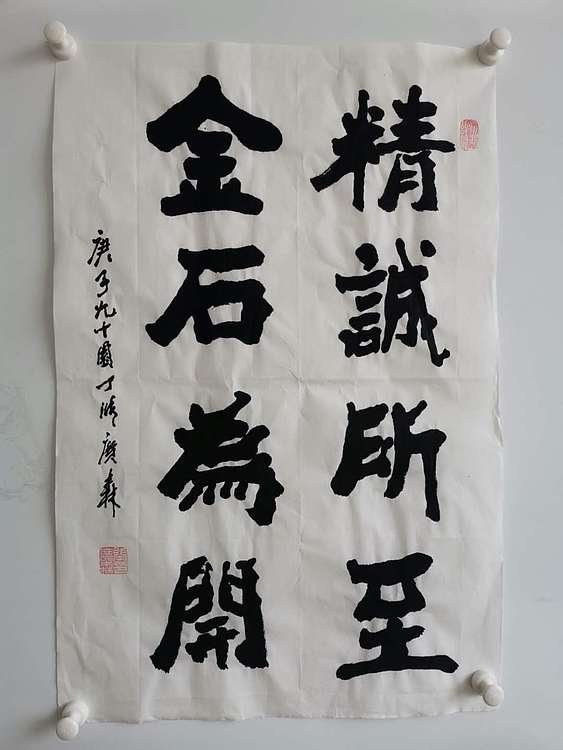 精誠所至
金石為開
庚子九十國
廣森